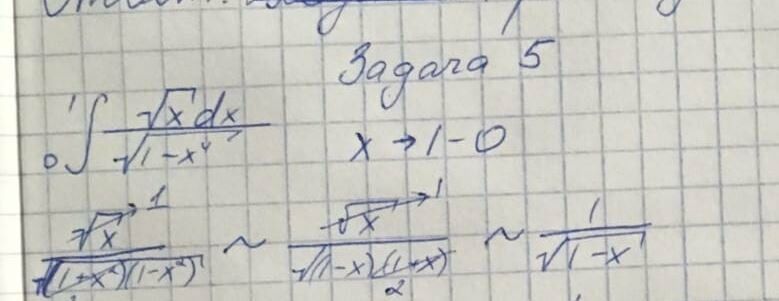 Задача 5
0∫1 √x dx / √(1-x⁴) x → 1-0
√x → 1 / √((1+x²)(1-x²)) ~ √x → 1 / √((1-x)(1+x)) 2 ~ 1 / √(1-x)